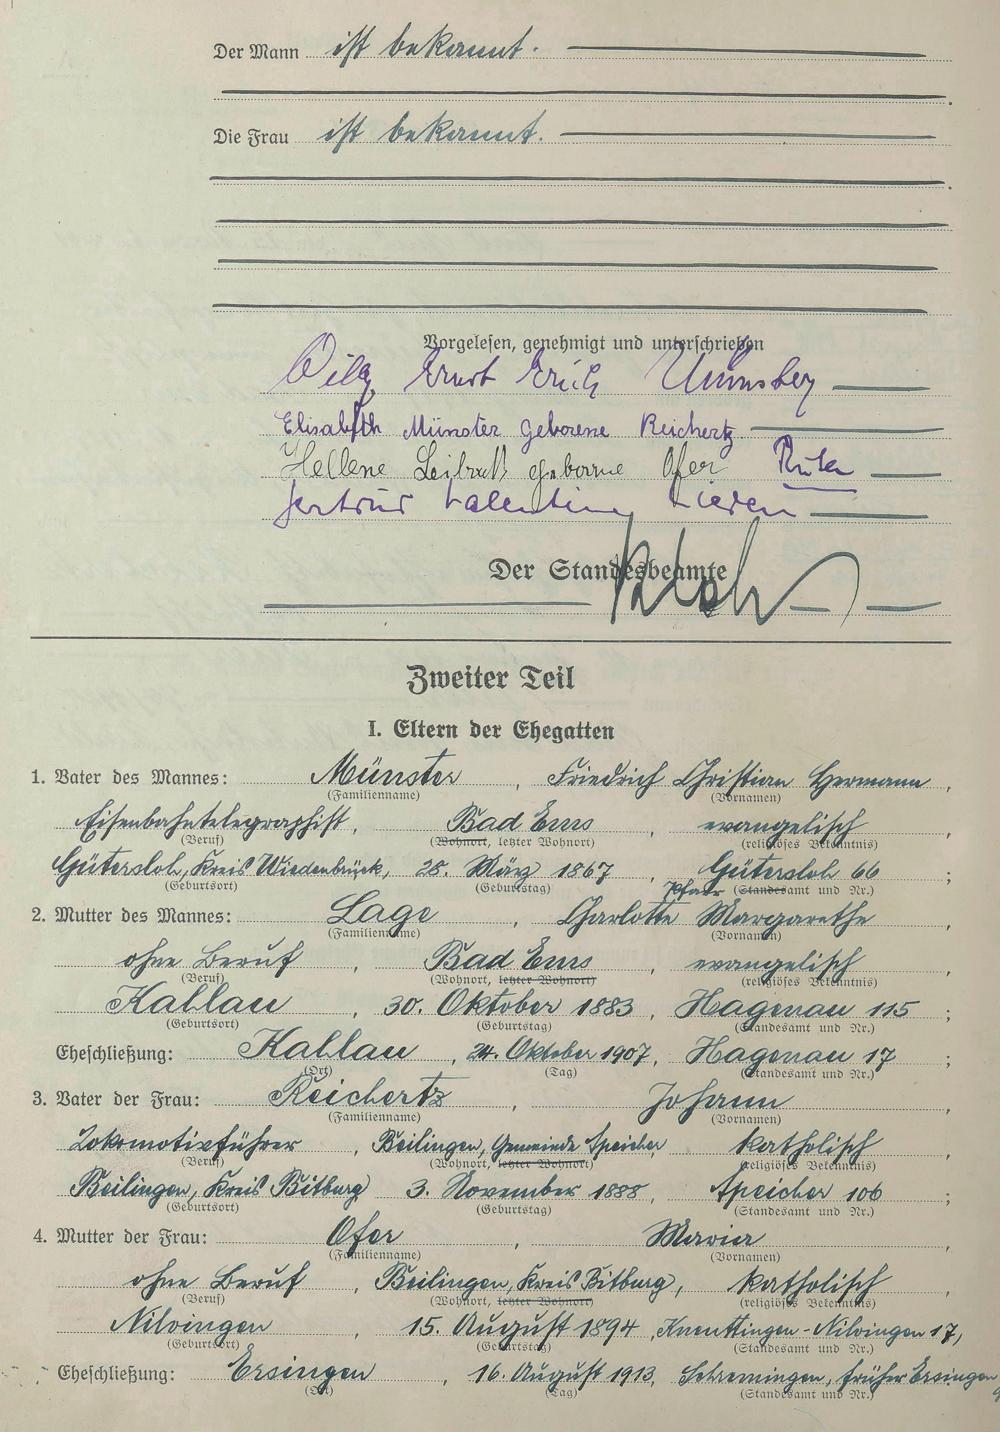 Der Mann ist bekannt.
Die Frau ist bekannt.
Vorgelesen, genehmigt und unterschrieben
Willy Ernst Erich Münster
Elisabeth Münster geborene Reichertz
Hellene geborne Ofer
Valentin
Der Standesbeamte
Zweiter Teil
I. Eltern der Ehegatten
1. Vater des Mannes: Münster, Friedrich Christian Hermann,
(Familienname) (Vornamen)
Eisenbahntelegraphist, Bad Ems, evangelisch
(Beruf) (Wohnort, letzter Wohnort) (religiöses Bekenntnis)
Gütersloh, Kreis Wiedenbrück, 28. März 1867, Gütersloh 66;
(Geburtsort) (Geburtstag) Pfarr (Standesamt und Nr.)
2. Mutter des Mannes: Lage, Charlotte Margarethe,
(Familienname) (Vornamen)
ohne Beruf, Bad Ems, evangelisch
(Beruf) (Wohnort, letzter Wohnort) (religiöses Bekenntnis)
Kallau, 30. Oktober 1883, Hagenau 115;
(Geburtsort) (Geburtstag) (Standesamt und Nr.)
Eheschließung: Kallau, 24. Oktober 1907, Hagenau 17;
(Ort) (Tag) (Standesamt und Nr.)
3. Vater der Frau: Reichertz, Johann,
(Familienname) (Vornamen)
Lokomotivführer, Beilingen, Gemeinde Speicher katholisch,
(Beruf) (Wohnort, letzter Wohnort) (religiöses Bekenntnis)
Beilingen, Kreis Bitburg 3. November 1888, Speicher 106;
(Geburtsort) (Geburtstag) (Standesamt und Nr.)
4. Mutter der Frau: Ofer, Maria,
(Familienname) (Vornamen)
ohne Beruf, Beilingen, Kreis Bitburg, katholisch,
(Beruf) (Wohnort, letzter Wohnort) (religiöses Bekenntnis)
Nilvingen, 15. August 1894, Kneuttingen-Nilvingen 17,
(Geburtsort) (Geburtstag) (Standesamt und Nr.)
Eheschließung: Ersingen, 16. August 1913, früher Ersingen
(Ort) (Tag) (Standesamt und Nr.)